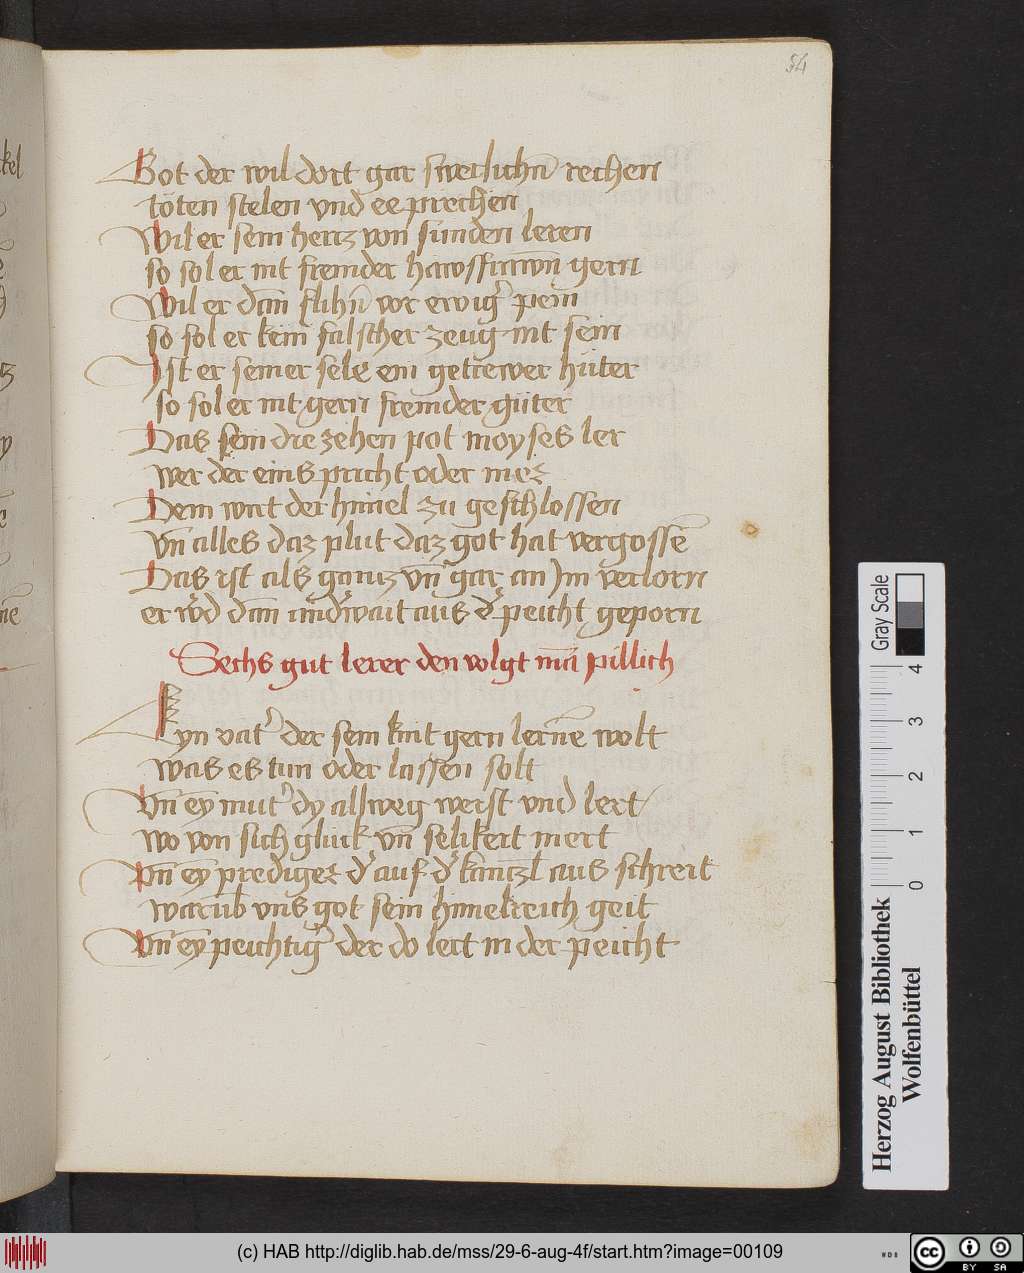 54
Got der wil dort gar swerlichn̄ rechen
töten stelen vnd ee prechen
Wil er sein hertz von sünden leren
so sol er nit fremder hawsfrawn̄ gern
Wil er dan̄ flihn̄ vor ewig' pein
so sol er kein falscher zeug nit sein
Ist er seiner sele ein getrewer hüter
so sol er nit gern fremder güter
Das sein die zehen pot moyses ler
wer der eins pricht oder mer
Dem wirt der himel zu geschlossen
vn̄ alles daz plut daz got hat vergossē
Das ist als gantz vn̄ gar an Im verlorn
er w'd dan̄ and'wait aus d' peicht geporn
Sechs gut lerer den volgt mā pillich
Eyn vat' der sein kint gern lerne wolt
was es tun oder lassen solt
Vn̄ ey mut' dy allweg werst vnd lert
wo von sich gluck vn̄ selikeit mert
Vn̄ ey prediger d' auf d' kantzl aus schreit
warūb vns got sein himelreich geit
Vn̄ ey peichtig' der do lert in der peicht
Gray Scale
0 1 2 3 4
Herzog August Bibliothek
Wolfenbüttel
(c) HAB http://diglib.hab.de/mss/29-6-aug-4f/start.htm?image=00109
cc BY SA